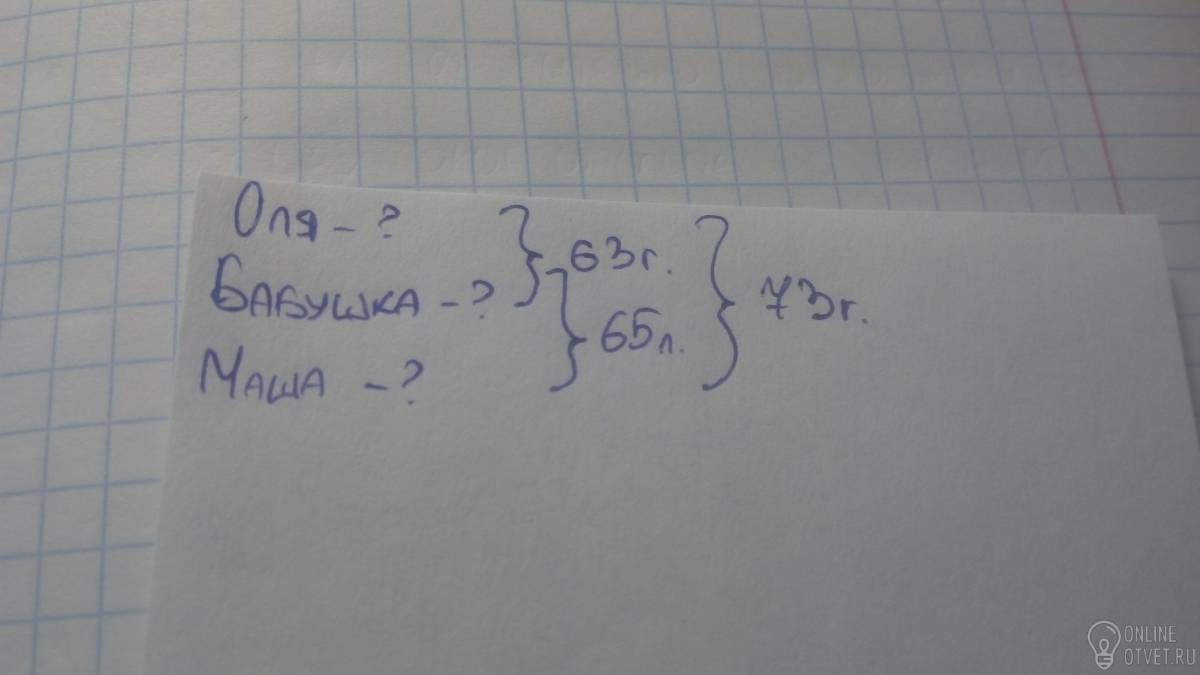 Оля – ?
63г.
Бабушка – ?
73г.
65л.
Маша – ?
ONLINE
OTVET.RU